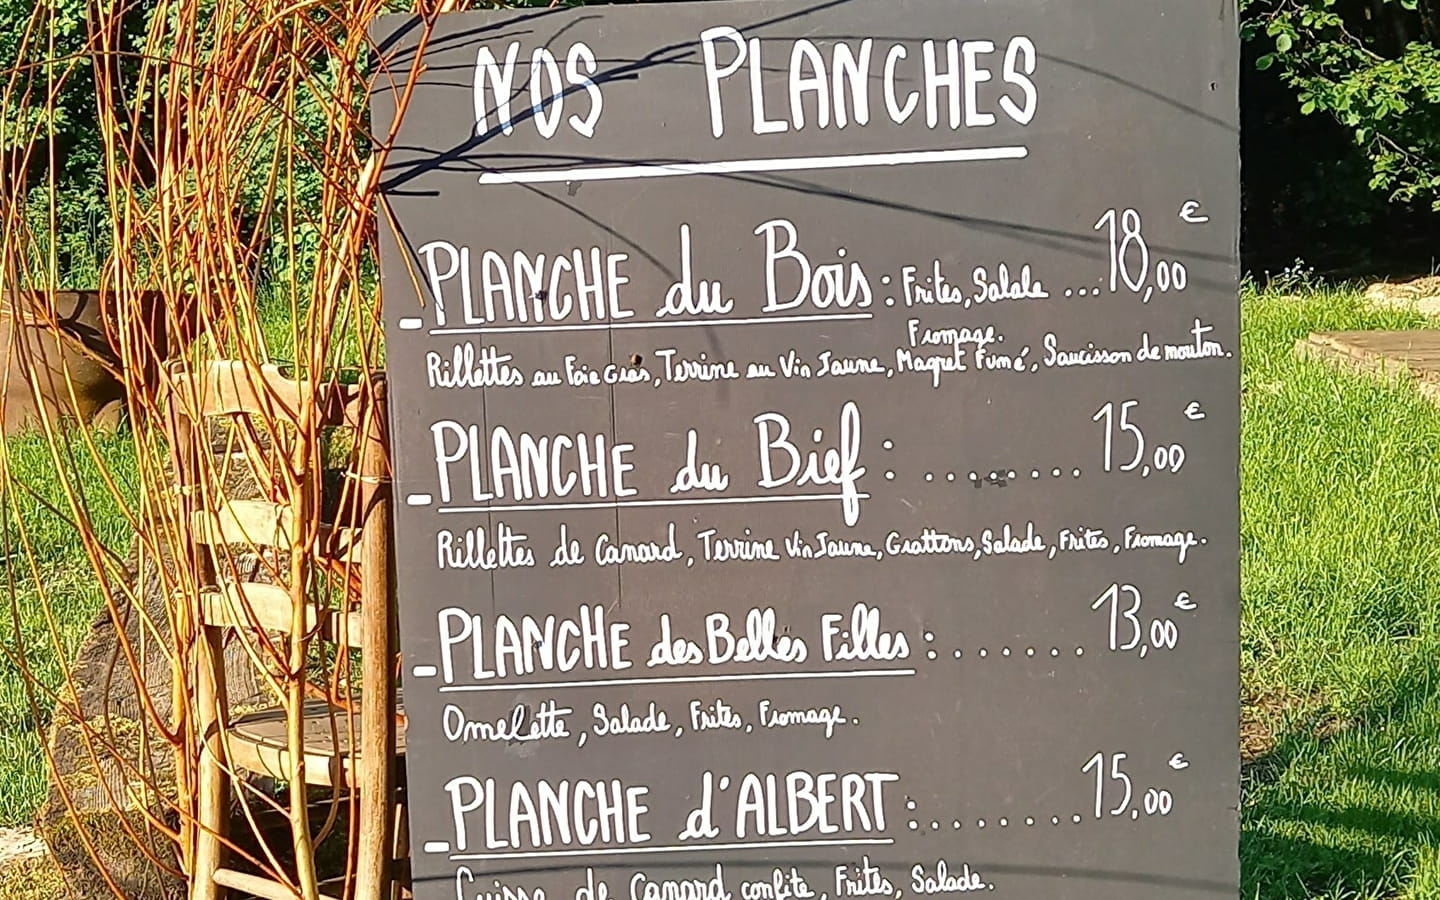 NOS PLANCHES
- PLANCHE du Bois : Frites, Salade ... 18,00 €
Fromage.
Rillettes au Foie Gras, Terrine au Vin Jaune, Magret Fumé, Saucisson de mouton.
- PLANCHE du Bief : ........ 15,00 €
Rillettes de Canard, Terrine Vin Jaune, Grattons, Salade, Frites, Fromage.
- PLANCHE des Belles Filles : ....... 13,00 €
Omelette, Salade, Frites, Fromage.
- PLANCHE d'ALBERT : ........ 15,00 €
Cuisse de Canard confite, Frites, Salade.